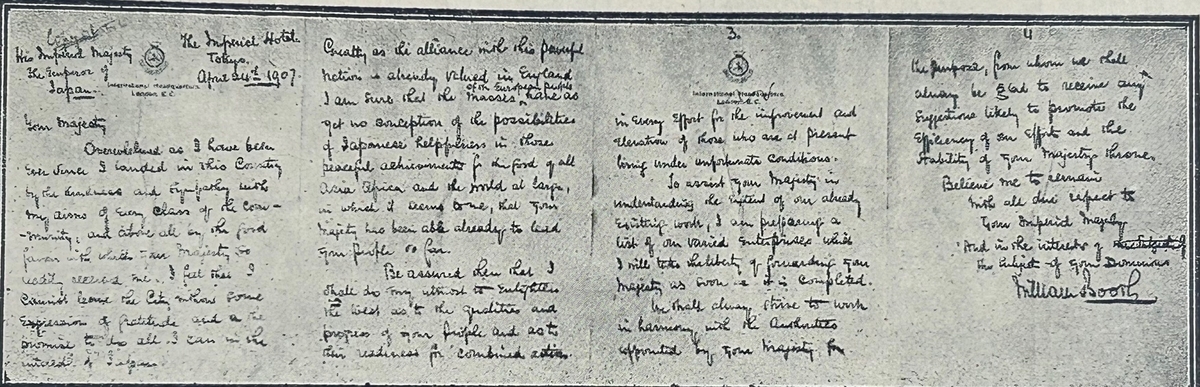 Copy of
His Imperial Majesty
The Emperor of
Japan.
The Imperial Hotel.
Tokyo.
April 24th 1907.
International Headquarters
London, E.C.
Your Majesty
Overwhelmed as I have been
Ever since I landed in this Country
by the kindness and Sympathy with
my aims of Every Class of the Com-
-munity; and above all by the good
favor with which Your Majesty so
received me. I feel that I
Cannot leave the City without some
Expression of Gratitude and a the
promise to do all I can in the
interest of Japan.
Greatly as the alliance with this powerful
Nation is already Valued in England
of the European peoples
I am sure that the Masses have as
yet no conception of the possibilities
of Japanese helpfulness in those
peaceful achievements for the good of all
Asia Africa and the World at large,
in which it seems to me, that Your
Majesty has been able already to lead
your people so far.
Be assured then that I
shall do my utmost to Enlighten
the West as to the qualities and
progress of Your people and as to
their readiness for combined action
3.
International Headquarters
London, E.C.
in Every Effort for the improvement and
Elevation of those who are at present
living under unfortunate conditions.
To assist Your Majesty in
understanding the Extent of our already
Existing work, I am preparing a
list of our Varied Enterprises which
I will take the liberty of forwarding Your
Majesty as soon as it is completed.
We shall always strive to work
in harmony with the Authorities
appointed by Your Majesty for
4
the purpose, from whom we shall
always be glad to receive any
Suggestions likely to promote the
Efficiency of our Efforts and the
Stability of Your Majestys throne.
Believe me to remain
With all due respect to
Your Imperial Majesty
And in the interests of
the Subjects of Your Dominions
William Booth